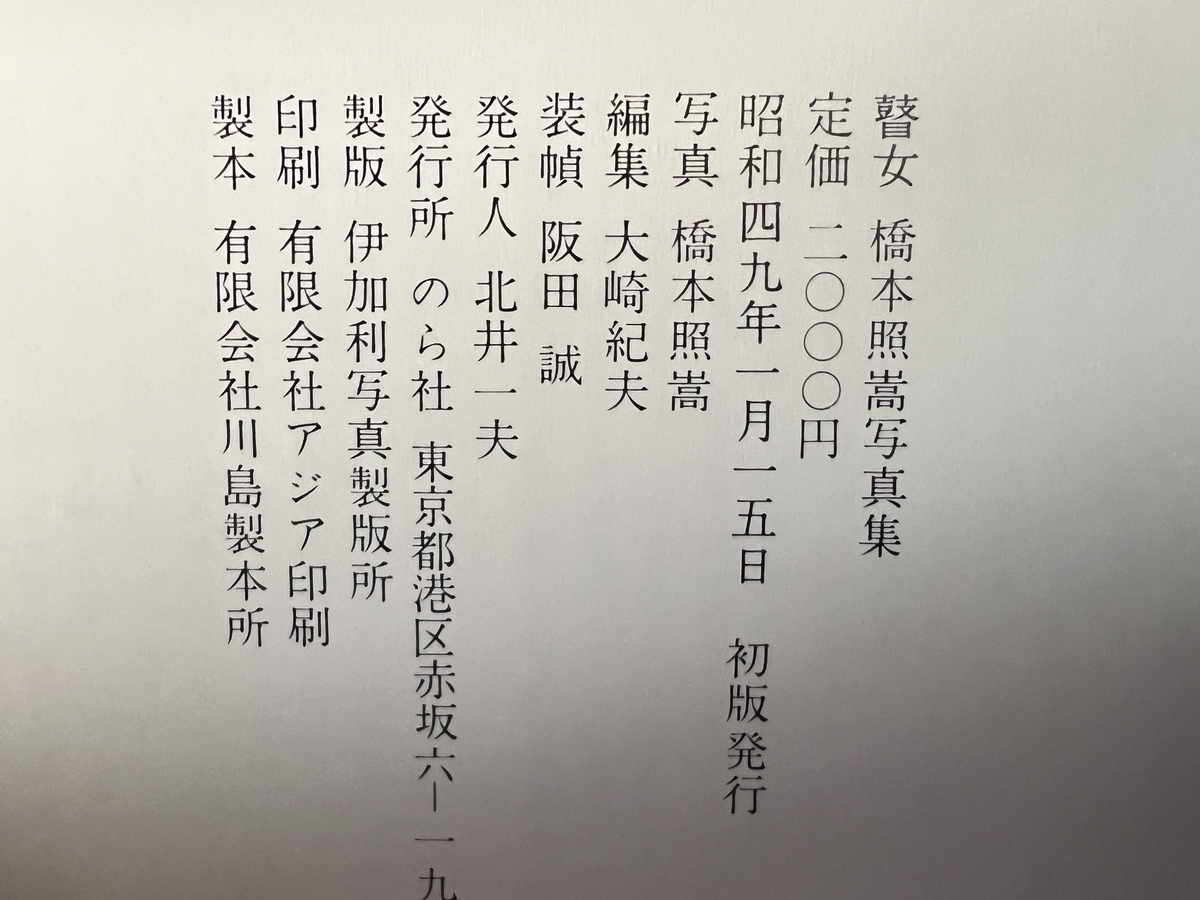 瞽女 橋本照嵩写真集
定価 二〇〇〇円
昭和四九年一月一五日 初版発行
写真 橋本照嵩
編集 大崎紀夫
装幀 阪田 誠
発行人 北井一夫
発行所 のら社 東京都港区赤坂六ー一九
製版 伊加利写真製版所
印刷 有限会社アジア印刷
製本 有限会社川島製本所